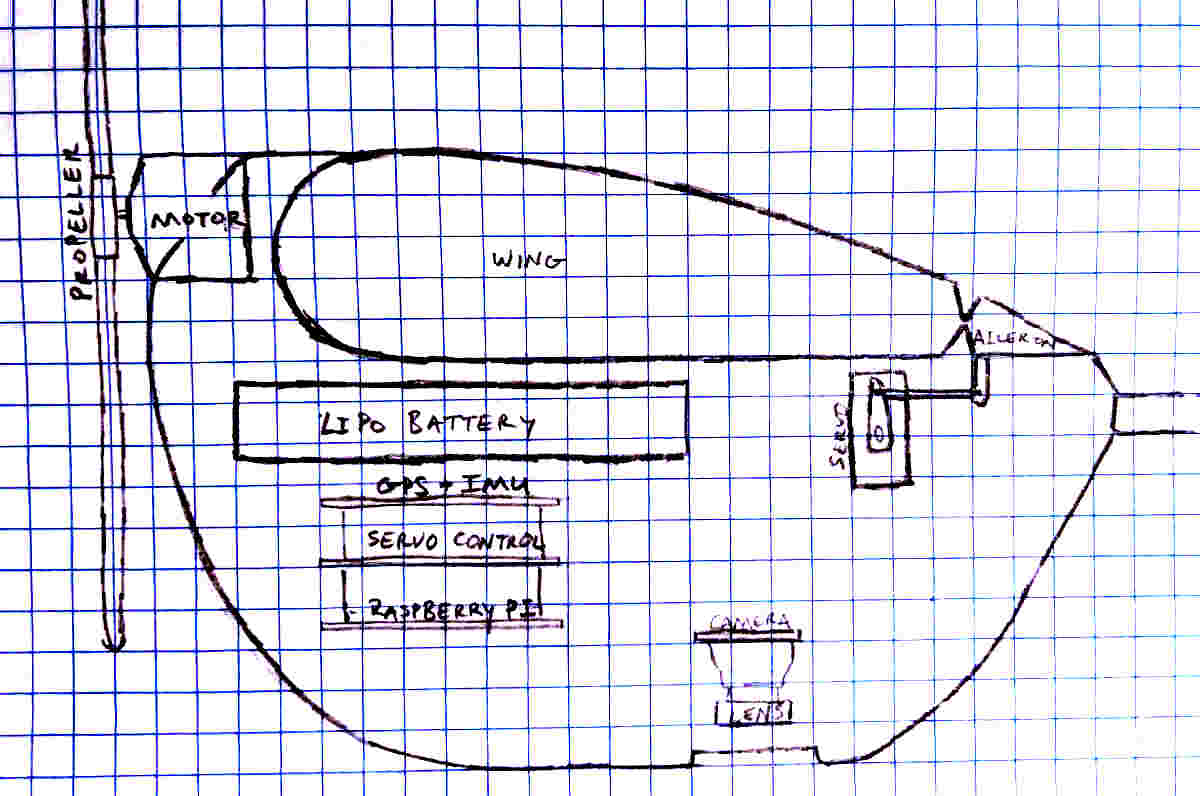 PROPELLER
MOTOR
WING
AILERON
LIPO BATTERY
SERVO
GPS + IMU
SERVO CONTROL
RASPBERRY PI
CAMERA
LENS